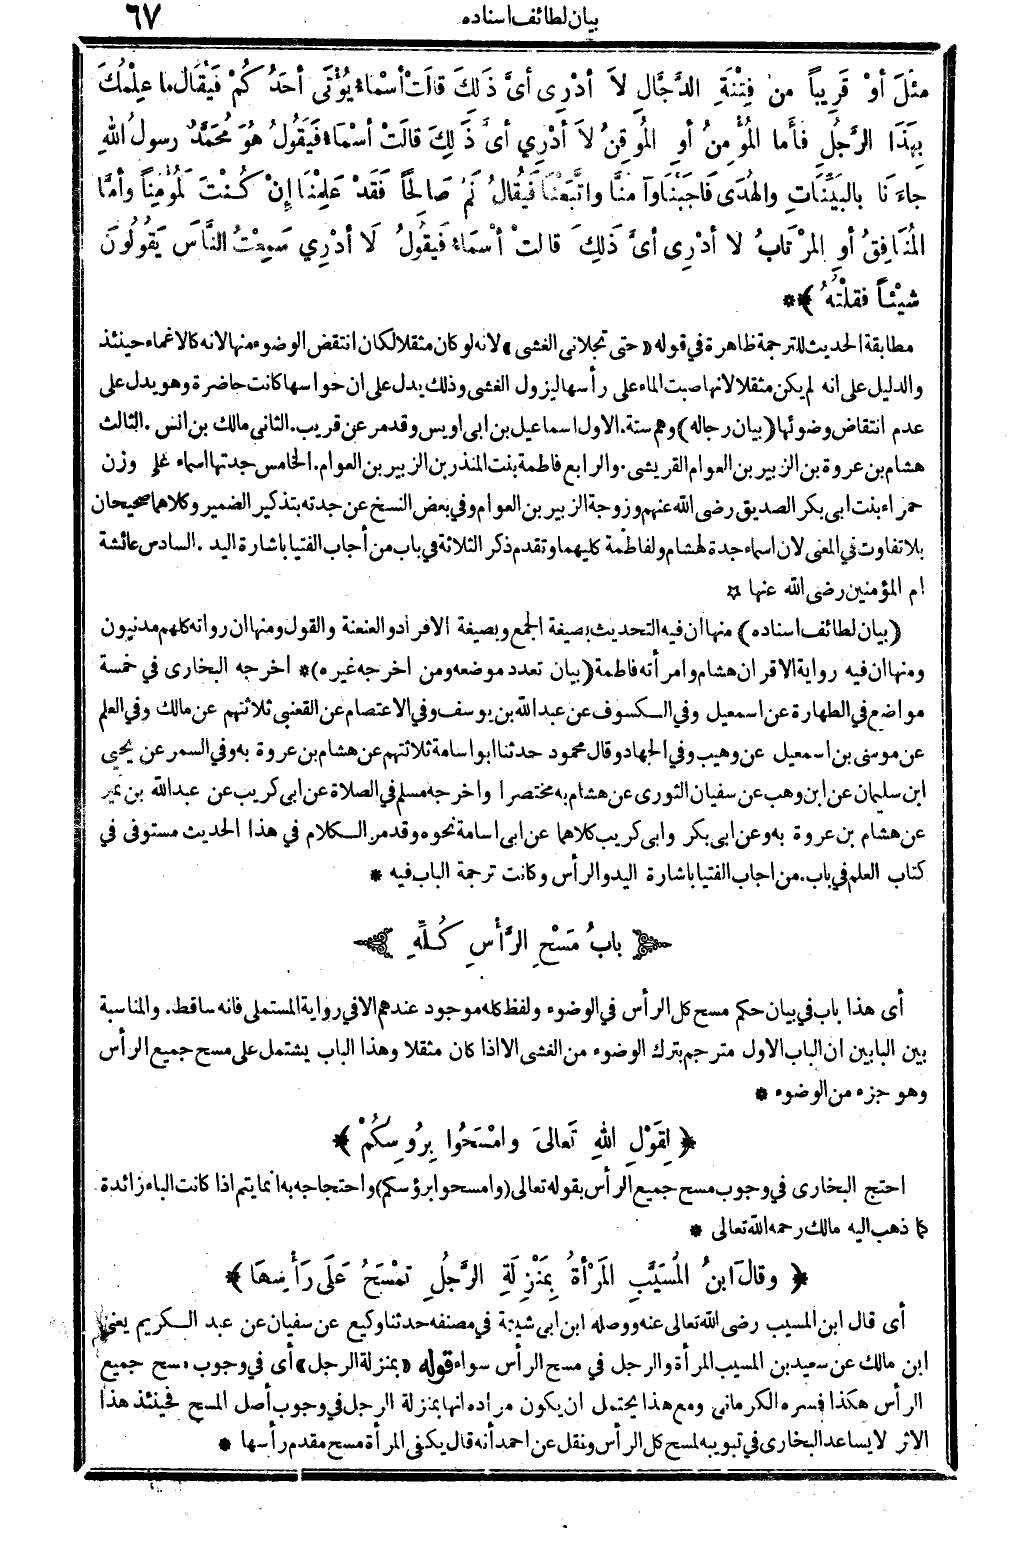 بيان لطائف اسناده ٦٧
مثْلَ أوْ قَرِيباً منْ فِتْنَةِ الدَّجَّالِ لاَ أدْرِى أىَّ ذَلِكَ قالَتْ أسْماءُ يُؤْتَى أحَدُكُمْ فَيُقَالُ ما عِلْمُكَ
بِهَذَا الرَّجُلِ فأَما المُؤْمِنُ أوِ المُوقِنُ لاَ أدْرِي أىَّ ذَلِكَ قالَتْ أسْمَاءُ فَيَقُولُ هُوَ مُحَمَّدٌ رسولُ اللهِ
جاءَنَا بالبَيِّنَاتِ والهُدَى فَأَجَبْنَا وآمَنَّا واتَّبَعْنَا فَيُقالُ نَمْ صَالِحاً فَقَدْ عَلِمْنَا إنْ كُنْتَ لَمُؤْمِناً وأمَّا
المُنَافِقُ أوِ المُرْتَابُ لا أدْرِى أىَّ ذَلِكَ قالتْ أسْمَاءُ فَيَقُولُ لَا أدْرِي سَمِعْتُ النَّاسَ يَقُولُونَ
شَيْئاً فَقُلْتُهُ ﴾ **
مطابقة الحديث للترجمة ظاهرة في قوله «حتى تجلانى الغشى» لانه لو كان مثقلا لكان انتقض الوضوء منها لانه كالاغماء حينئذ
والدليل على انه لم يكن مثقلا لانها صبت الماء على رأسها ليزول الغشى وذلك يدل على ان حواسها كانت حاضرة وهو يدل على
عدم انتقاض وضوئها (بيان رجاله) وهم ستة. الاول اسماعيل بن ابى اويس وقد مر عن قريب. الثانى مالك بن انس. الثالث
هشام بن عروة بن الزبير بن العوام القريشى. والرابع فاطمة بنت المنذر بن الزبير بن العوام. الخامس جدتها اسماء على وزن
حمراء بنت ابى بكر الصديق رضى الله عنهم وزوجة الزبير بن العوام وفي بعض النسخ عن جدته بتذكير الضمير وكلاهما صحيحان
بلا تفاوت في المعنى لان اسماء جدة لهشام ولفاطمة كليهما وتقدم ذكر الثلاثة في باب من أجاب الفتيا باشارة اليد. السادس عائشة
ام المؤمنين رضى الله عنها *
(بيان لطائف اسناده) منها ان فيه التحديث بصيغة الجمع وبصيغة الافراد والعنعنة والقول ومنها ان رواته كلهم مدنيون
ومنها ان فيه رواية الاقران هشام وامرأته فاطمة (بيان تعدد موضعه ومن اخرجه غيره) * اخرجه البخارى في خمسة
مواضع في الطهارة عن اسمعيل وفي الكسوف عن عبد الله بن يوسف وفي الاعتصام عن القعنبى ثلاثتهم عن مالك وفي العلم
عن موسى بن اسمعيل عن وهيب وفي الجهاد وقال محمود حدثنا ابو اسامة ثلاثتهم عن هشام بن عروة به وفي السمر عن يحيى
ابن سليمان عن ابن وهب عن سفيان الثورى عن هشام به مختصرا واخرجه مسلم في الصلاة عن ابى كريب عن عبد الله بن نمير
عن هشام بن عروة به وعن ابى بكر وابى كريب كلاهما عن ابى اسامة نحوه وقد مر الكلام في هذا الحديث مستوفى في
كتاب العلم في باب. من اجاب الفتيا باشارة اليد والرأس وكانت ترجمة الباب فيه *
بابُ مَسْحِ الرَّأْسِ كُلِّهِ
أى هذا باب في بيان حكم مسح كل الرأس في الوضوء ولفظ كله موجود عندهم الا في رواية المستملى فانه ساقط. والمناسبة
بين البابين ان الباب الاول مترجم بترك الوضوء من الغشى الا اذا كان مثقلا وهذا الباب يشتمل على مسح جميع الرأس
وهو جزء من الوضوء *
﴿ لِقَوْلِ اللهِ تَعالىَ وامْسَحُوا بِرُوسِكُمْ ﴾ *
احتج البخارى في وجوب مسح جميع الرأس بقوله تعالى (وامسحوا برؤسكم) واحتجاجه به انما يتم اذا كانت الباء زائدة
كما ذهب اليه مالك رحمه الله تعالى *
﴿ وقالَ ابنُ المُسَيَّبِ المَرْأةُ بِمَنْزِلَةِ الرَّجُلِ تمْسَحُ عَلَى رَأْسِهَا ﴾ *
أى قال ابن المسيب رضى الله تعالى عنه ووصله ابن ابى شيبة في مصنفه حدثنا وكيع عن سفيان عن عبد الكريم يعنى
ابن مالك عن سعيد بن المسيب المرأة والرجل في مسح الرأس سواء قوله «بمنزلة الرجل» أى في وجوب مسح جميع
الرأس هكذا فسره الكرمانى ومع هذا يحتمل ان يكون مراده انها بمنزلة الرجل في وجوب أصل المسح فحينئذ هذا
الاثر لا يساعد البخارى في تبويبه لمسح كل الرأس ونقل عن احمد أنه قال يكفى المرأة مسح مقدم رأسها *